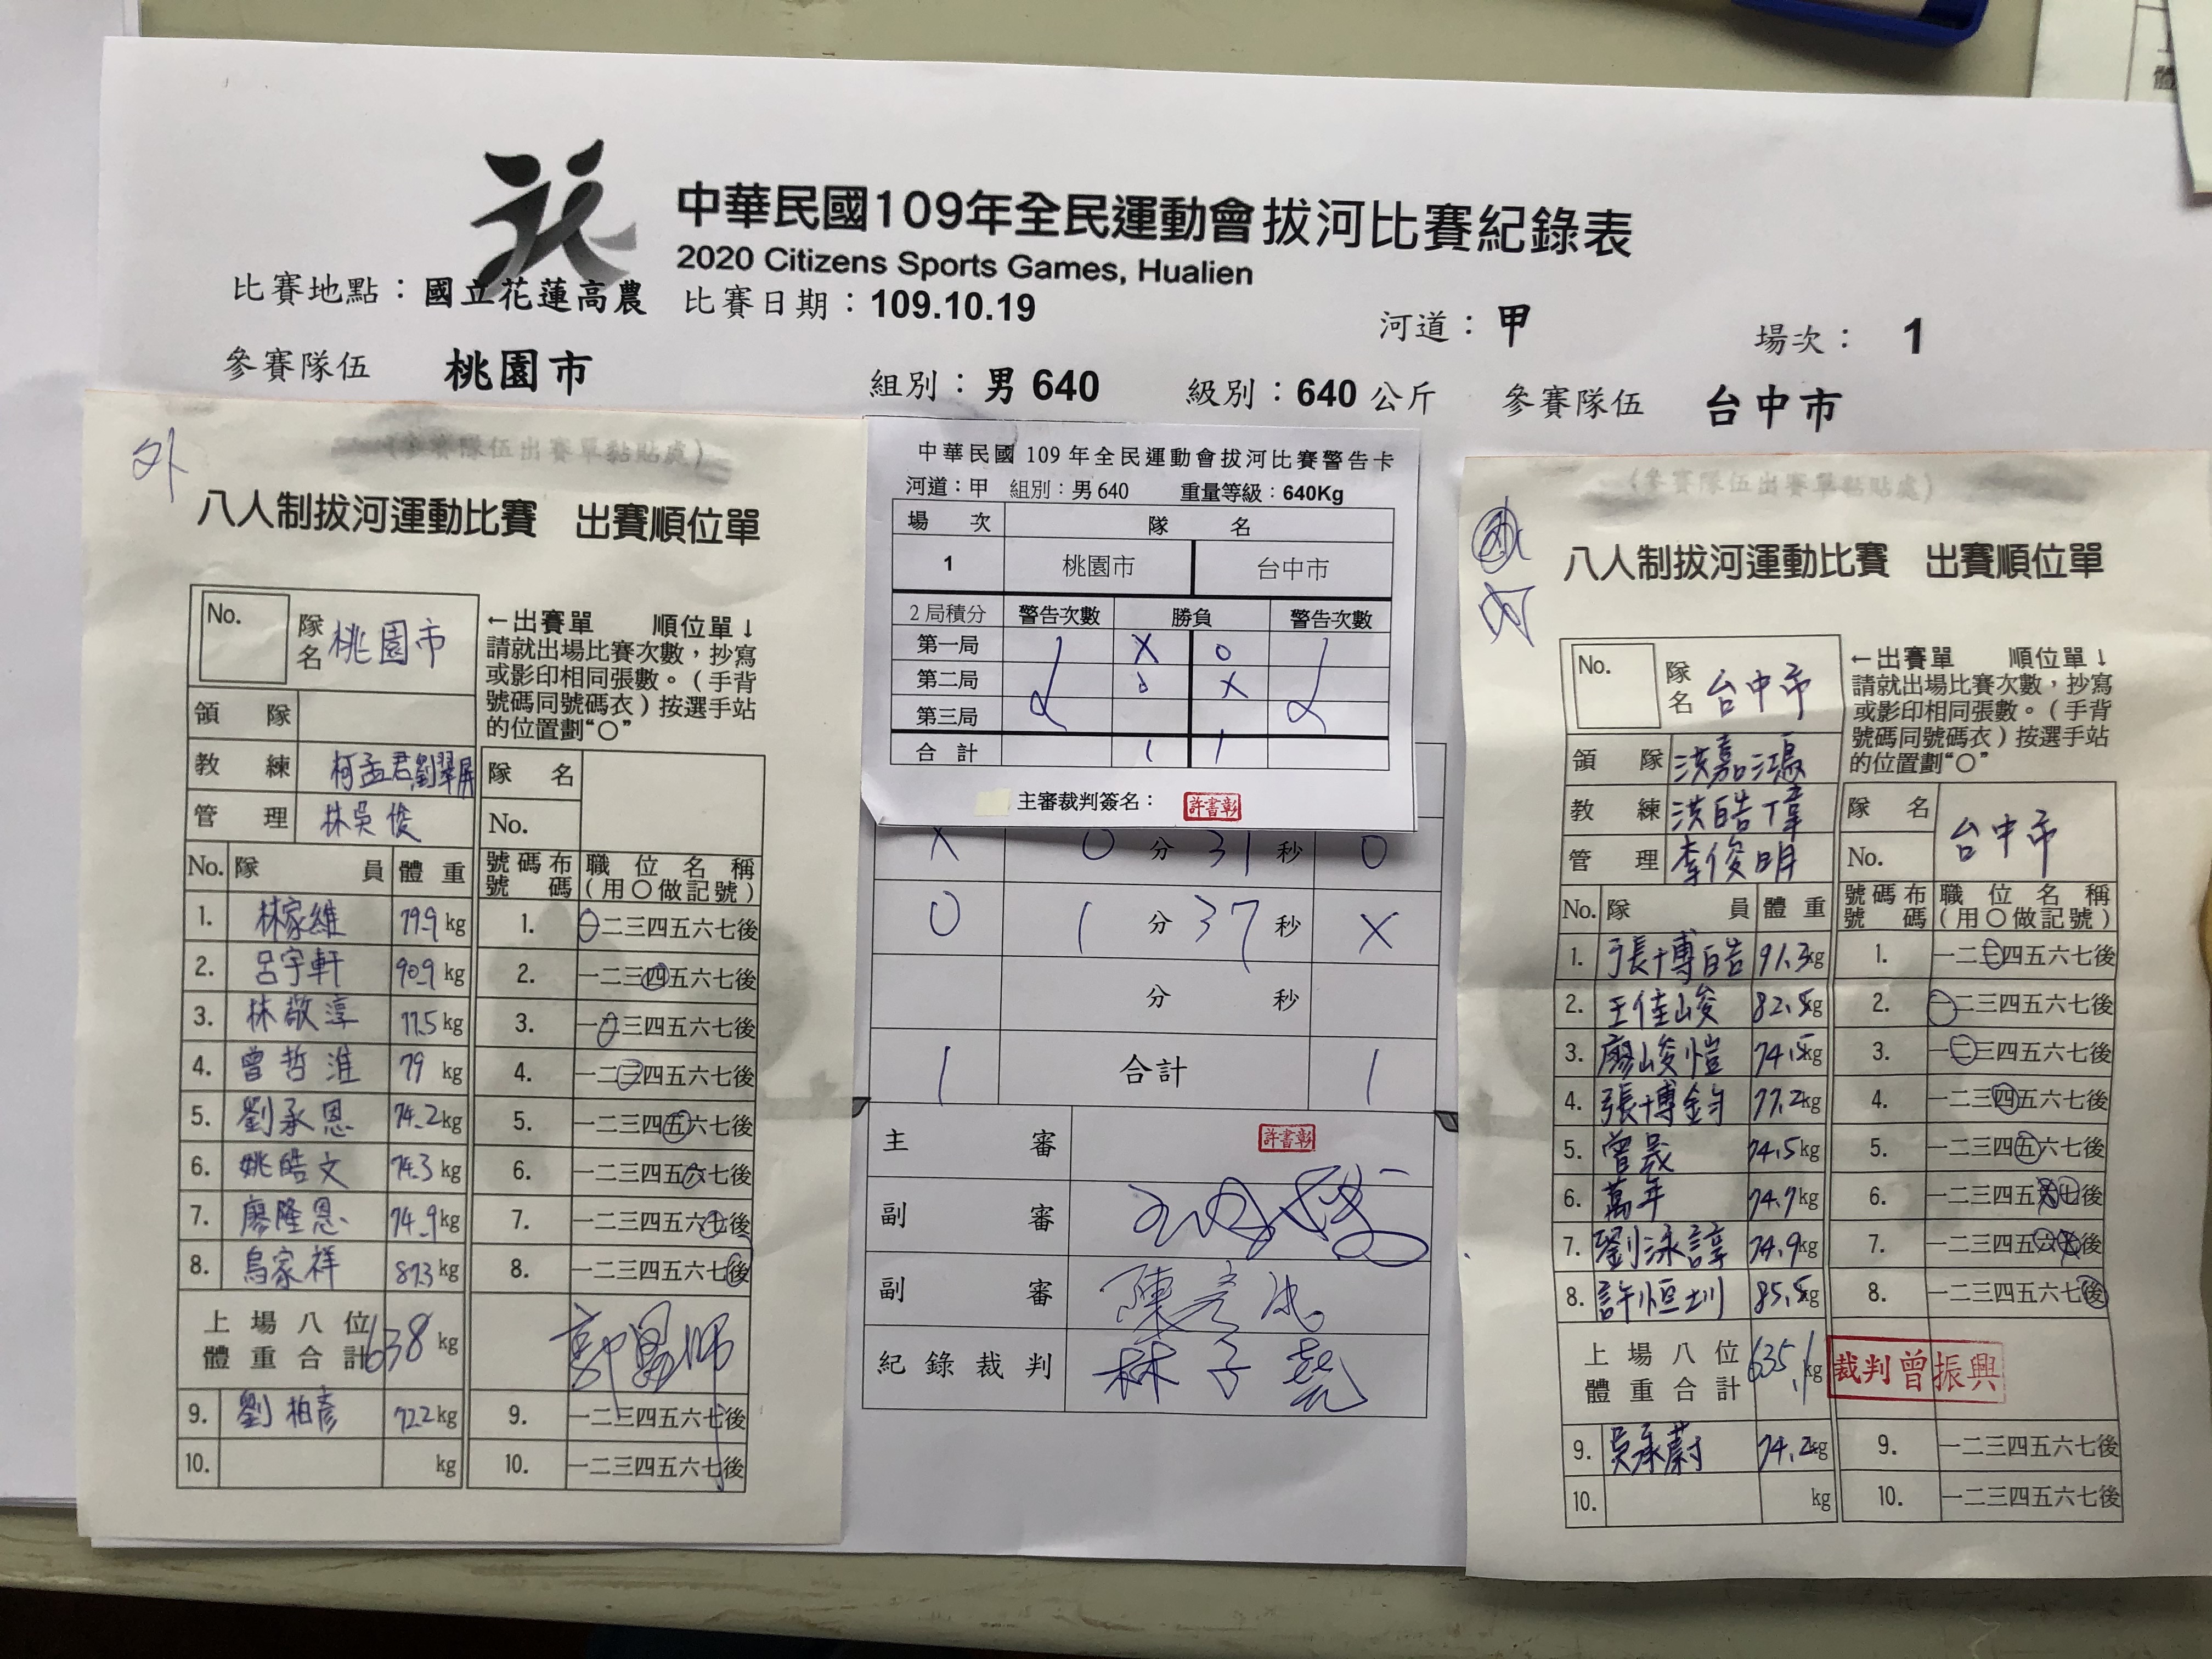 中華民國109年全民運動會拔河比賽紀錄表
2020 Citizens Sports Games, Hualien
比賽地點：國立花蓮高農 比賽日期：109.10.19 河道：甲 場次： 1
參賽隊伍 桃園市 組別：男 640 級別：640 公斤 參賽隊伍 台中市
外
(參賽隊伍出賽單黏貼處)
八人制拔河運動比賽 出賽順位單
No. 隊名 桃園市
←出賽單 順位單↓
請就出場比賽次數，抄寫
或影印相同張數。（手背
號碼同號碼衣）按選手站
的位置劃“○”
領 隊
教 練 柯孟君劉翠屏
管 理 林吳俊
隊 名
No.
No. 隊 員 體 重 號碼布號碼 職位名稱(用○做記號)
1. 林家維 79.9 kg 1. 一二三四五六七後
2. 呂宇軒 90.9 kg 2. 一二三四五六七後
3. 林敬淳 77.5 kg 3. 一二三四五六七後
4. 曾哲淮 79 kg 4. 一二三四五六七後
5. 劉承恩 74.2 kg 5. 一二三四五六七後
6. 姚皓文 74.3 kg 6. 一二三四五六七後
7. 廖隆恩 74.9 kg 7. 一二三四五六七後
8. 烏家祥 87.3 kg 8. 一二三四五六七後
上場八位體重合計 638 kg
9. 劉柏彥 72.2 kg 9. 一二三四五六七後
10. kg 10. 一二三四五六七後
中華民國 109 年全民運動會拔河比賽警告卡
河道：甲 組別：男 640 重量等級：640Kg
場 次 隊 名
1 桃園市 台中市
2 局積分 警告次數 勝負 警告次數
第一局 X O
第二局 O X
第三局
合 計 1 1
主審裁判簽名： 許書彰
X 0 分 31 秒 O
O 1 分 37 秒 X
分 秒
1 合計 1
主 審 許書彰
副 審
副 審 陳彥冰
紀錄裁判 林子堯
(參賽隊伍出賽單黏貼處)
內
八人制拔河運動比賽 出賽順位單
No. 隊名 台中市
←出賽單 順位單↓
請就出場比賽次數，抄寫
或影印相同張數。（手背
號碼同號碼衣）按選手站
的位置劃“○”
領 隊 洪嘉鴻
教 練 洪皓偉
管 理 李俊明
隊 名 台中市
No.
No. 隊 員 體 重 號碼布號碼 職位名稱(用○做記號)
1. 張博皓 91.3 kg 1. 一二三四五六七後
2. 王佳峻 82.5 kg 2. 一二三四五六七後
3. 廖峻愷 74.5 kg 3. 一二三四五六七後
4. 張博鈞 77.2 kg 4. 一二三四五六七後
5. 曾晟 74.5 kg 5. 一二三四五六七後
6. 萬年 74.7 kg 6. 一二三四五六七後
7. 劉泳諄 74.9 kg 7. 一二三四五六七後
8. 許恒圳 85.5 kg 8. 一二三四五六七後
上場八位體重合計 635.1 kg 裁判曾振興
9. 吳承蔚 74.2 kg 9. 一二三四五六七後
10. kg 10. 一二三四五六七後